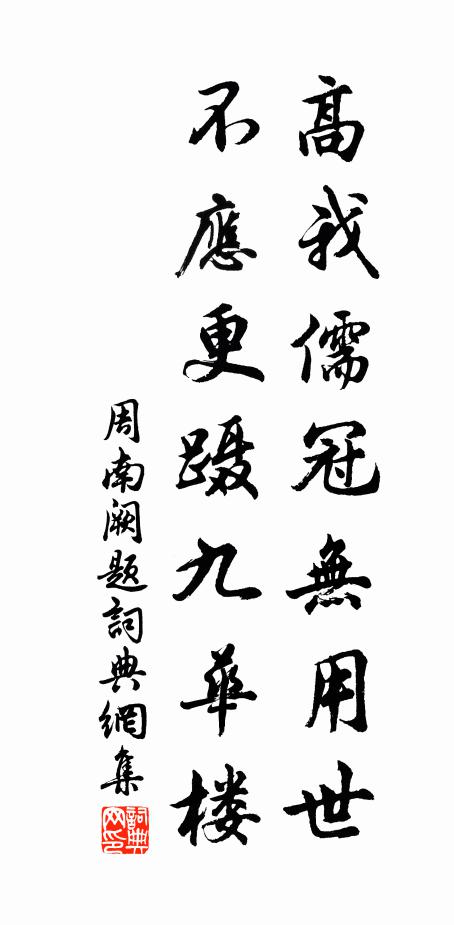 高我儒冠無用世
不應更蹑九華楼
周南阙题詞典網集
詞典网印